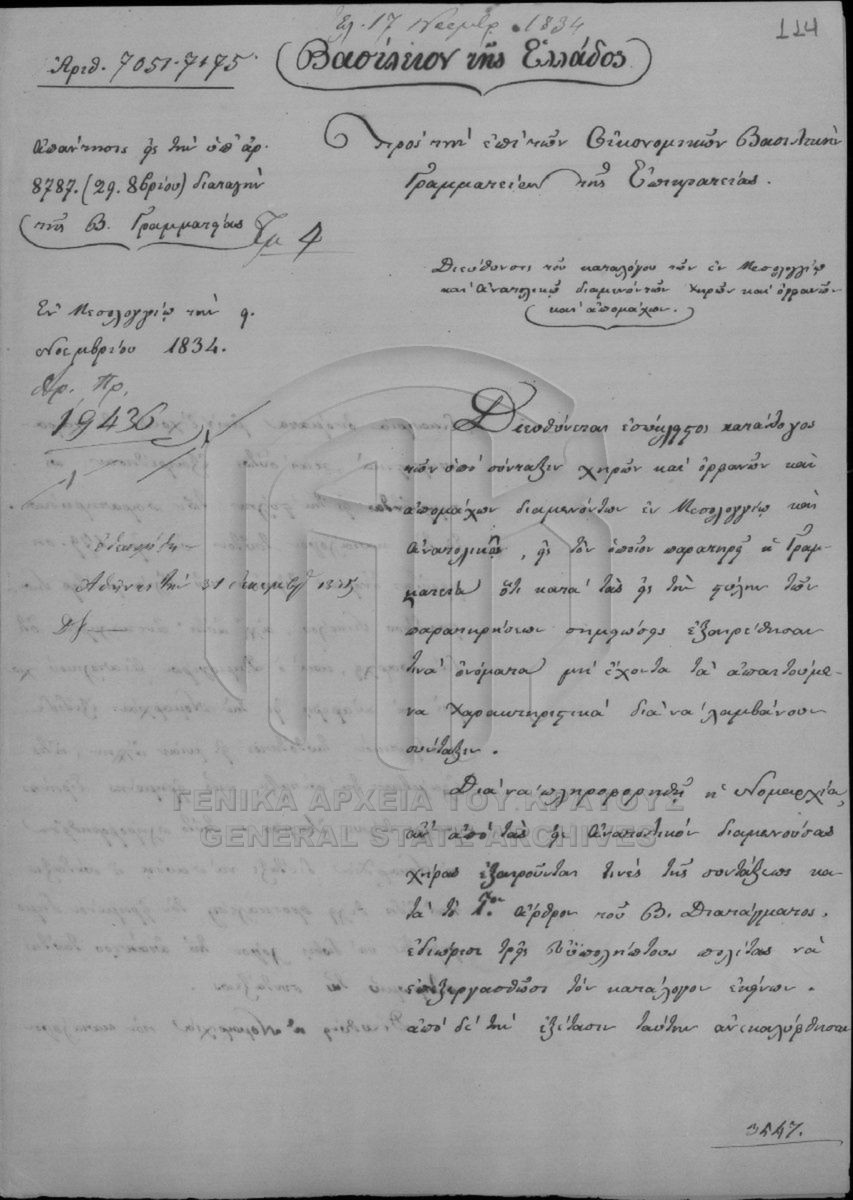 Ἐλ. 17 Νοεμβρ. 1834
114
Ἀριθ. 7051-7175.
Βασίλειον τῆς Ἑλλάδος
Ἀπάντησις εἰς τὴν ὑπ' ἀρ.
8787. (29. 8βρίου) διαταγὴν
τῆς Β. Γραμματείας
Τμ 4
Πρὸς τὴν ἐπὶ τῶν Οἰκονομικῶν Βασιλικὴν
Γραμματείαν τῆς Ἐπικρατείας.
Διεύθυνσις τοῦ καταλόγου τῶν ἐν Μεσολογγίῳ
καὶ Ἀνατολικῷ διαμενόντων χηρῶν καὶ ὀρφανῶν
καὶ ἀπομάχων.
Ἐν Μεσολογγίῳ τὴν 9.
Νοεμβρίου 1834.
Ἀρ. Πρ.
19436
Ἀθήνας τὴν 31
Διευθύνεται ἐσώκλειστος κατάλογος
τῶν ὑπὸ σύνταξιν χηρῶν καὶ ὀρφανῶν καὶ
ἀπομάχων διαμενόντων ἐν Μεσολογγίῳ καὶ
Ἀνατολικῷ, εἰς τὸν ὁποῖον παρατηρεῖ ἡ Γραμ-
ματεία ὅτι κατὰ τὰς εἰς τὴν στήλην τῶν
παρατηρήσεων σημειώσεις ἐξῃρέθησαν
τινὰ ὀνόματα μὴ ἔχοντα τὰ ἀπαιτούμε-
να χαρακτηριστικὰ διὰ νὰ λαμβάνουν
σύνταξιν.
Διὰ νὰ πληροφορηθῇ ἡ Νομαρχία,
ἂν ἀπὸ τὰς εἰς Ἀνατολικὸν διαμενούσας
χήρας ἐξαιροῦνται τινὲς τῆς συντάξεως κα-
τὰ τὸ 1ον ἄρθρον τοῦ Β. Διατάγματος,
ἐδιώρισε τρεῖς εὐϋπολήπτους πολίτας νὰ
ἐπεξεργασθῶσι τὸν κατάλογον ἐκείνων.
ἀπὸ δὲ τὴν ἐξέτασιν ταύτην ἀνεκαλύφθησαν
ΓΕΝΙΚΑ ΑΡΧΕΙΑ ΤΟΥ ΚΡΑΤΟΥΣ
GENERAL STATE ARCHIVES
3547.